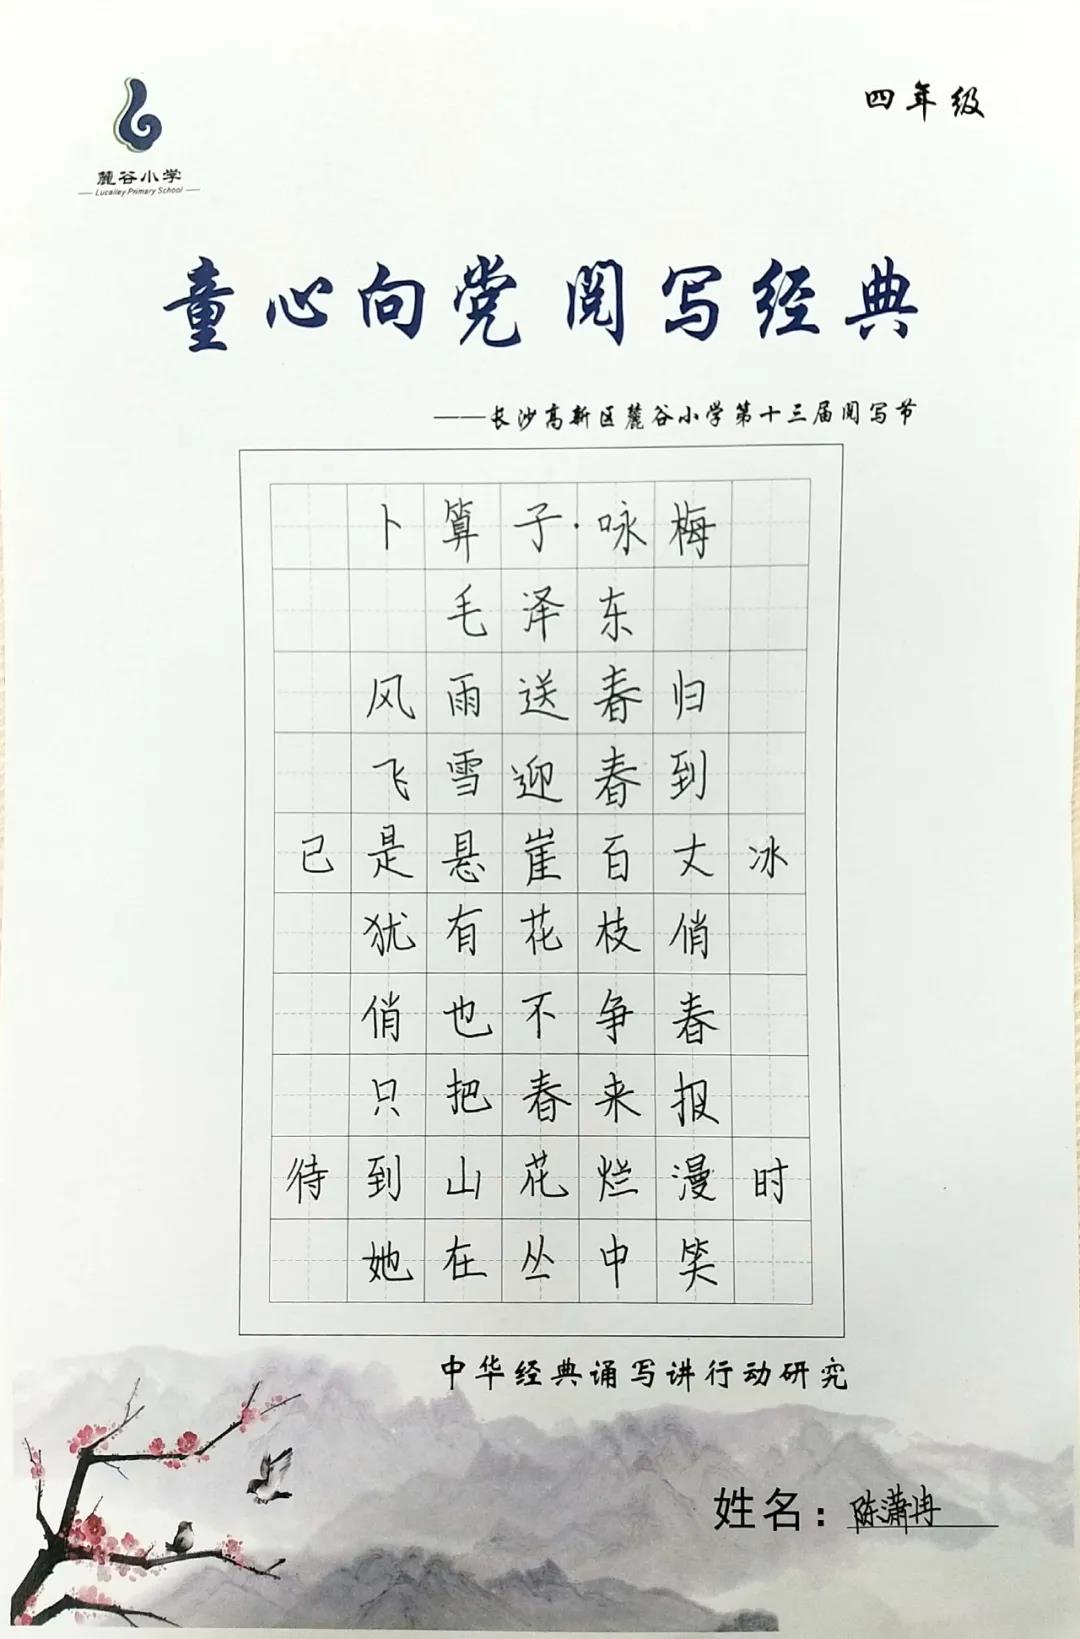 四年级
麓谷小学
Lucalley Primary School
童心向党 阅写经典
——长沙高新区麓谷小学第十三届阅写节
卜算子·咏梅
毛泽东
风雨送春归
飞雪迎春到
已是悬崖百丈冰
犹有花枝俏
俏也不争春
只把春来报
待到山花烂漫时
她在丛中笑
中华经典诵写讲行动研究
姓名：陈潇冉